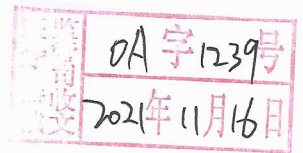 OA字1239号
2021年11月16日